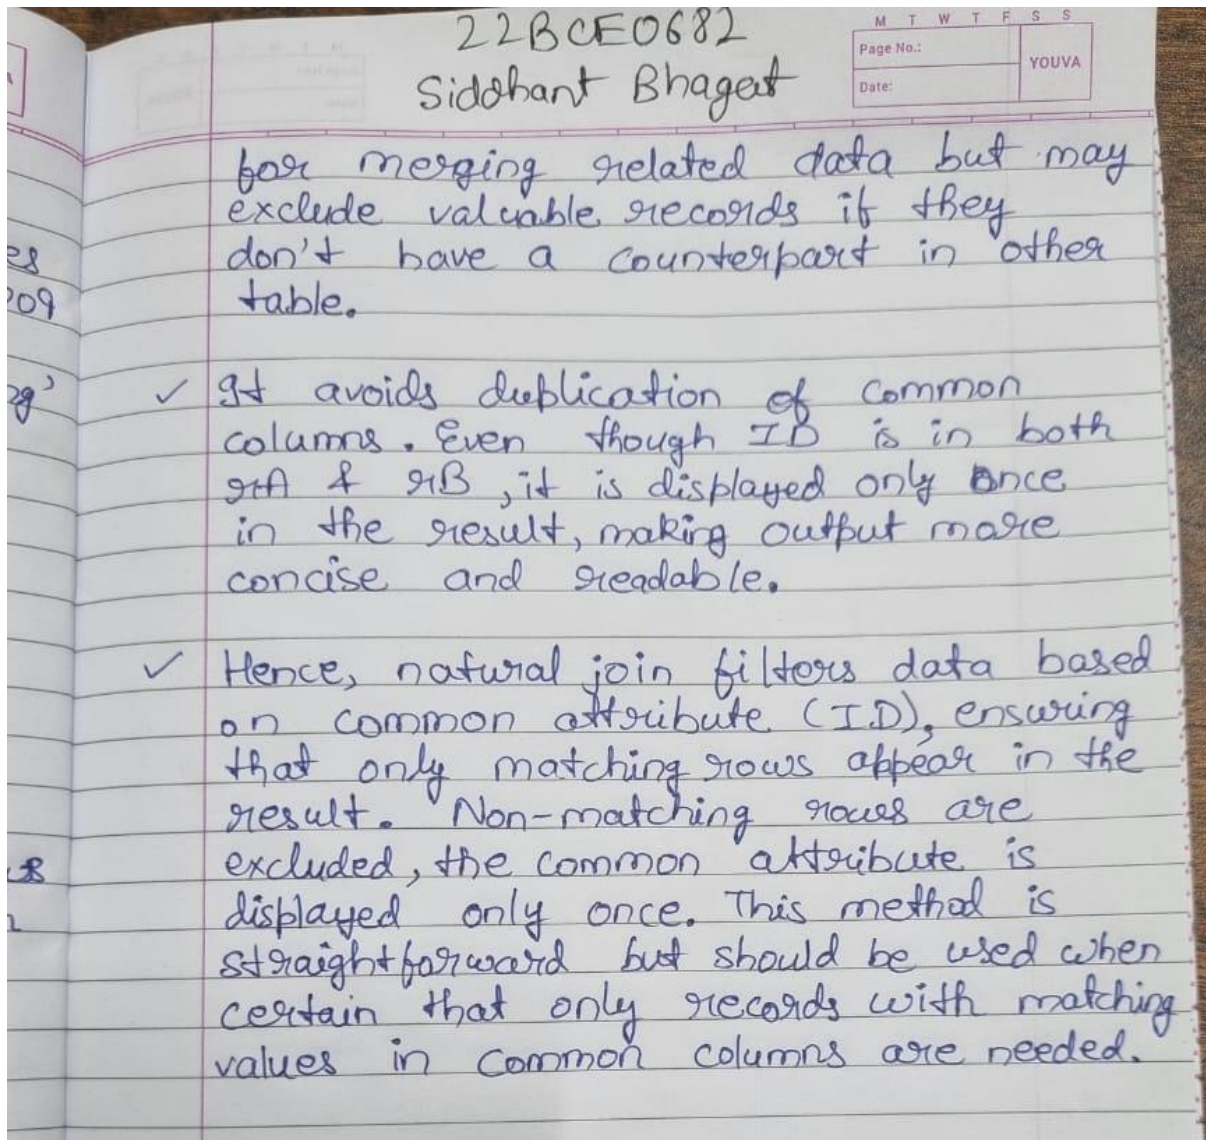 22BCE0682
Siddhant Bhagat
M T W T F S S
Page No.:
YOUVA
Date:
for merging related data but may
exclude valuable records if they
don't have a counterpart in other
table.
es
209
✓ It avoids duplication of common
columns. Even though ID is in both
rA & rB, it is displayed only once
in the result, making output more
concise and readable.
✓ Hence, natural join filters data based
on common attribute (ID), ensuring
that only matching rows appear in the
result. Non-matching rows are
excluded, the common attribute is
displayed only once. This method is
straightforward but should be used when
certain that only records with matching
values in common columns are needed.